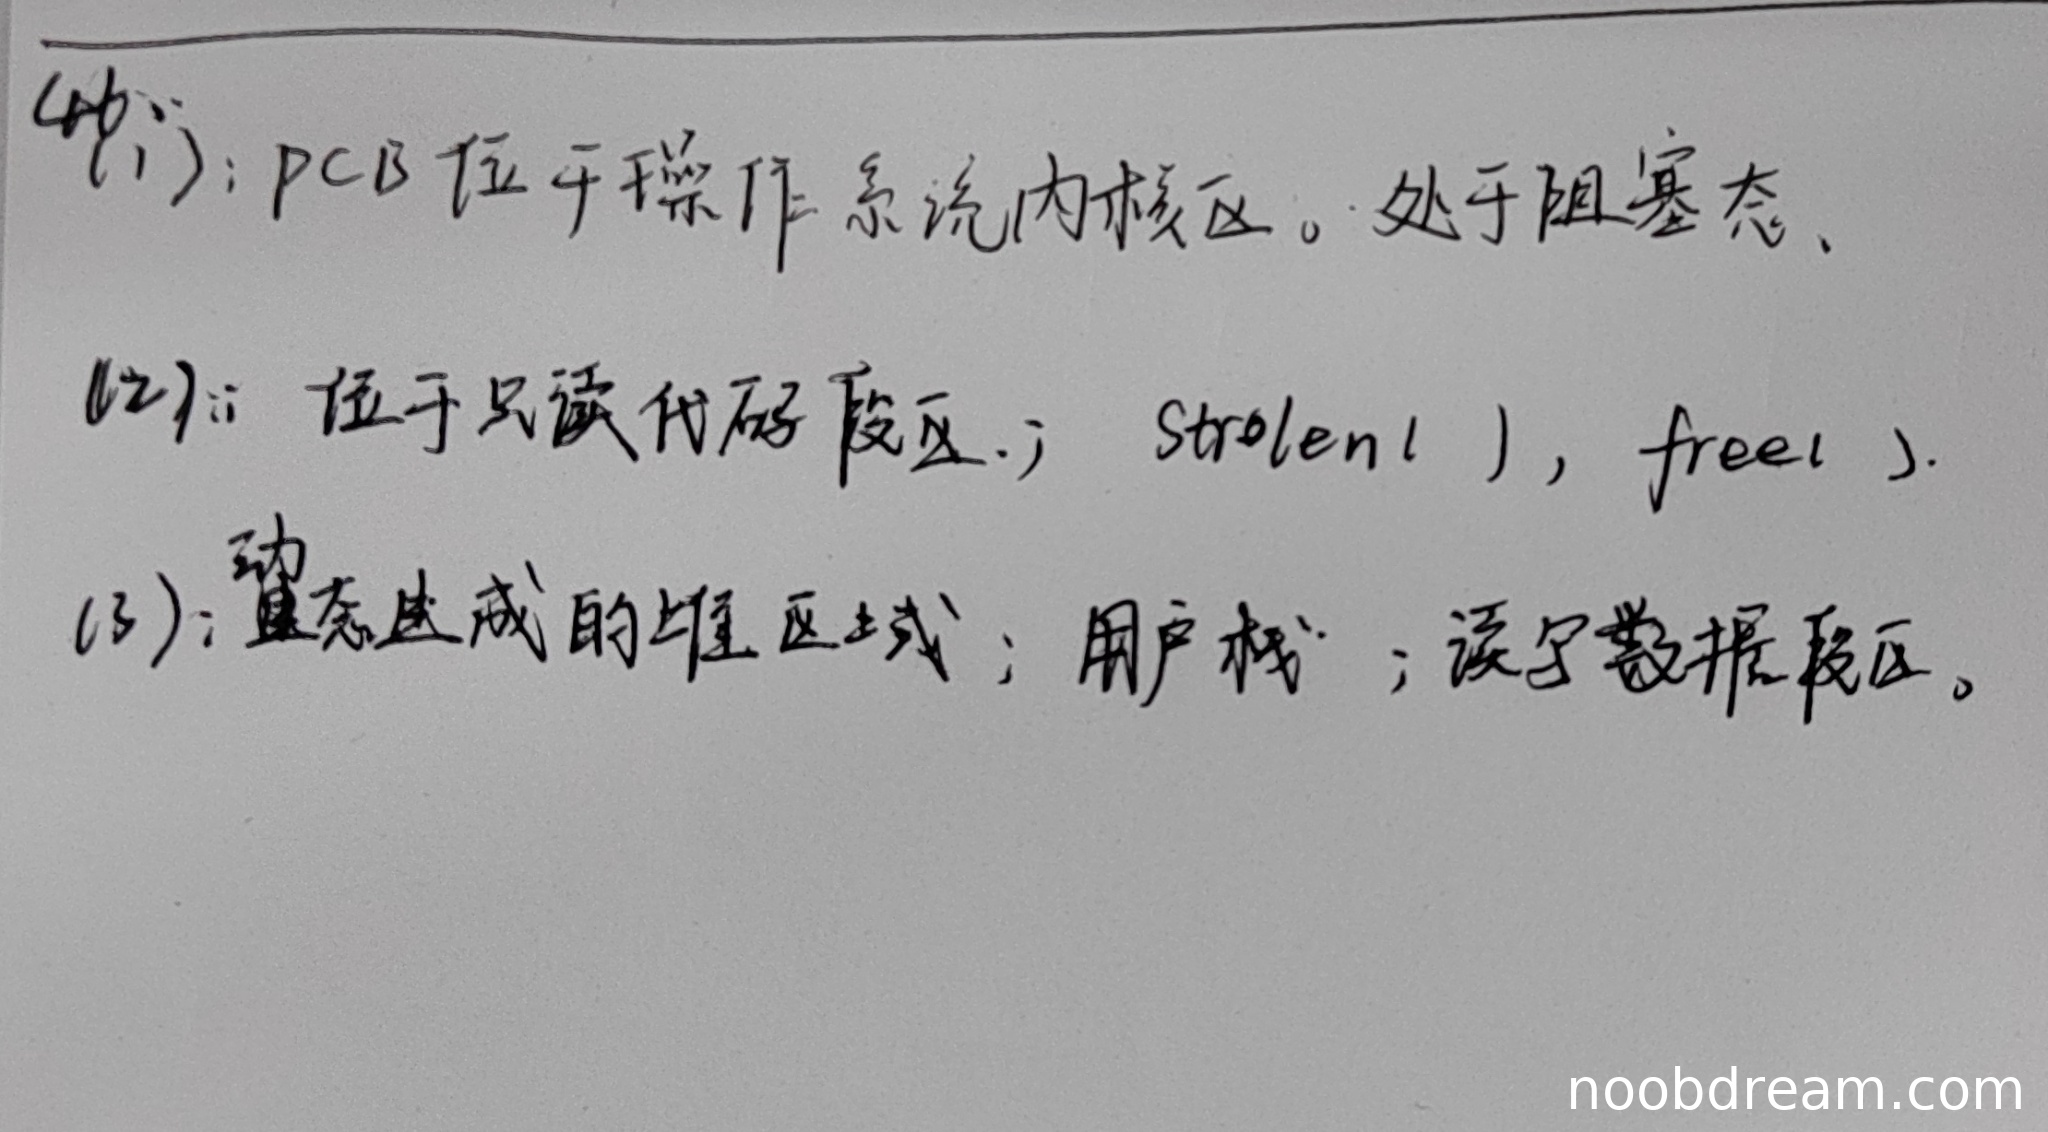 46:
(1): PCB 位于操作系统内核区。处于阻塞态、
(2):: 位于只读代码段区.; Strolen( ), free( ).
(3): 动态生成的堆区域; 用户栈; 读写数据段区。
noobdream.com